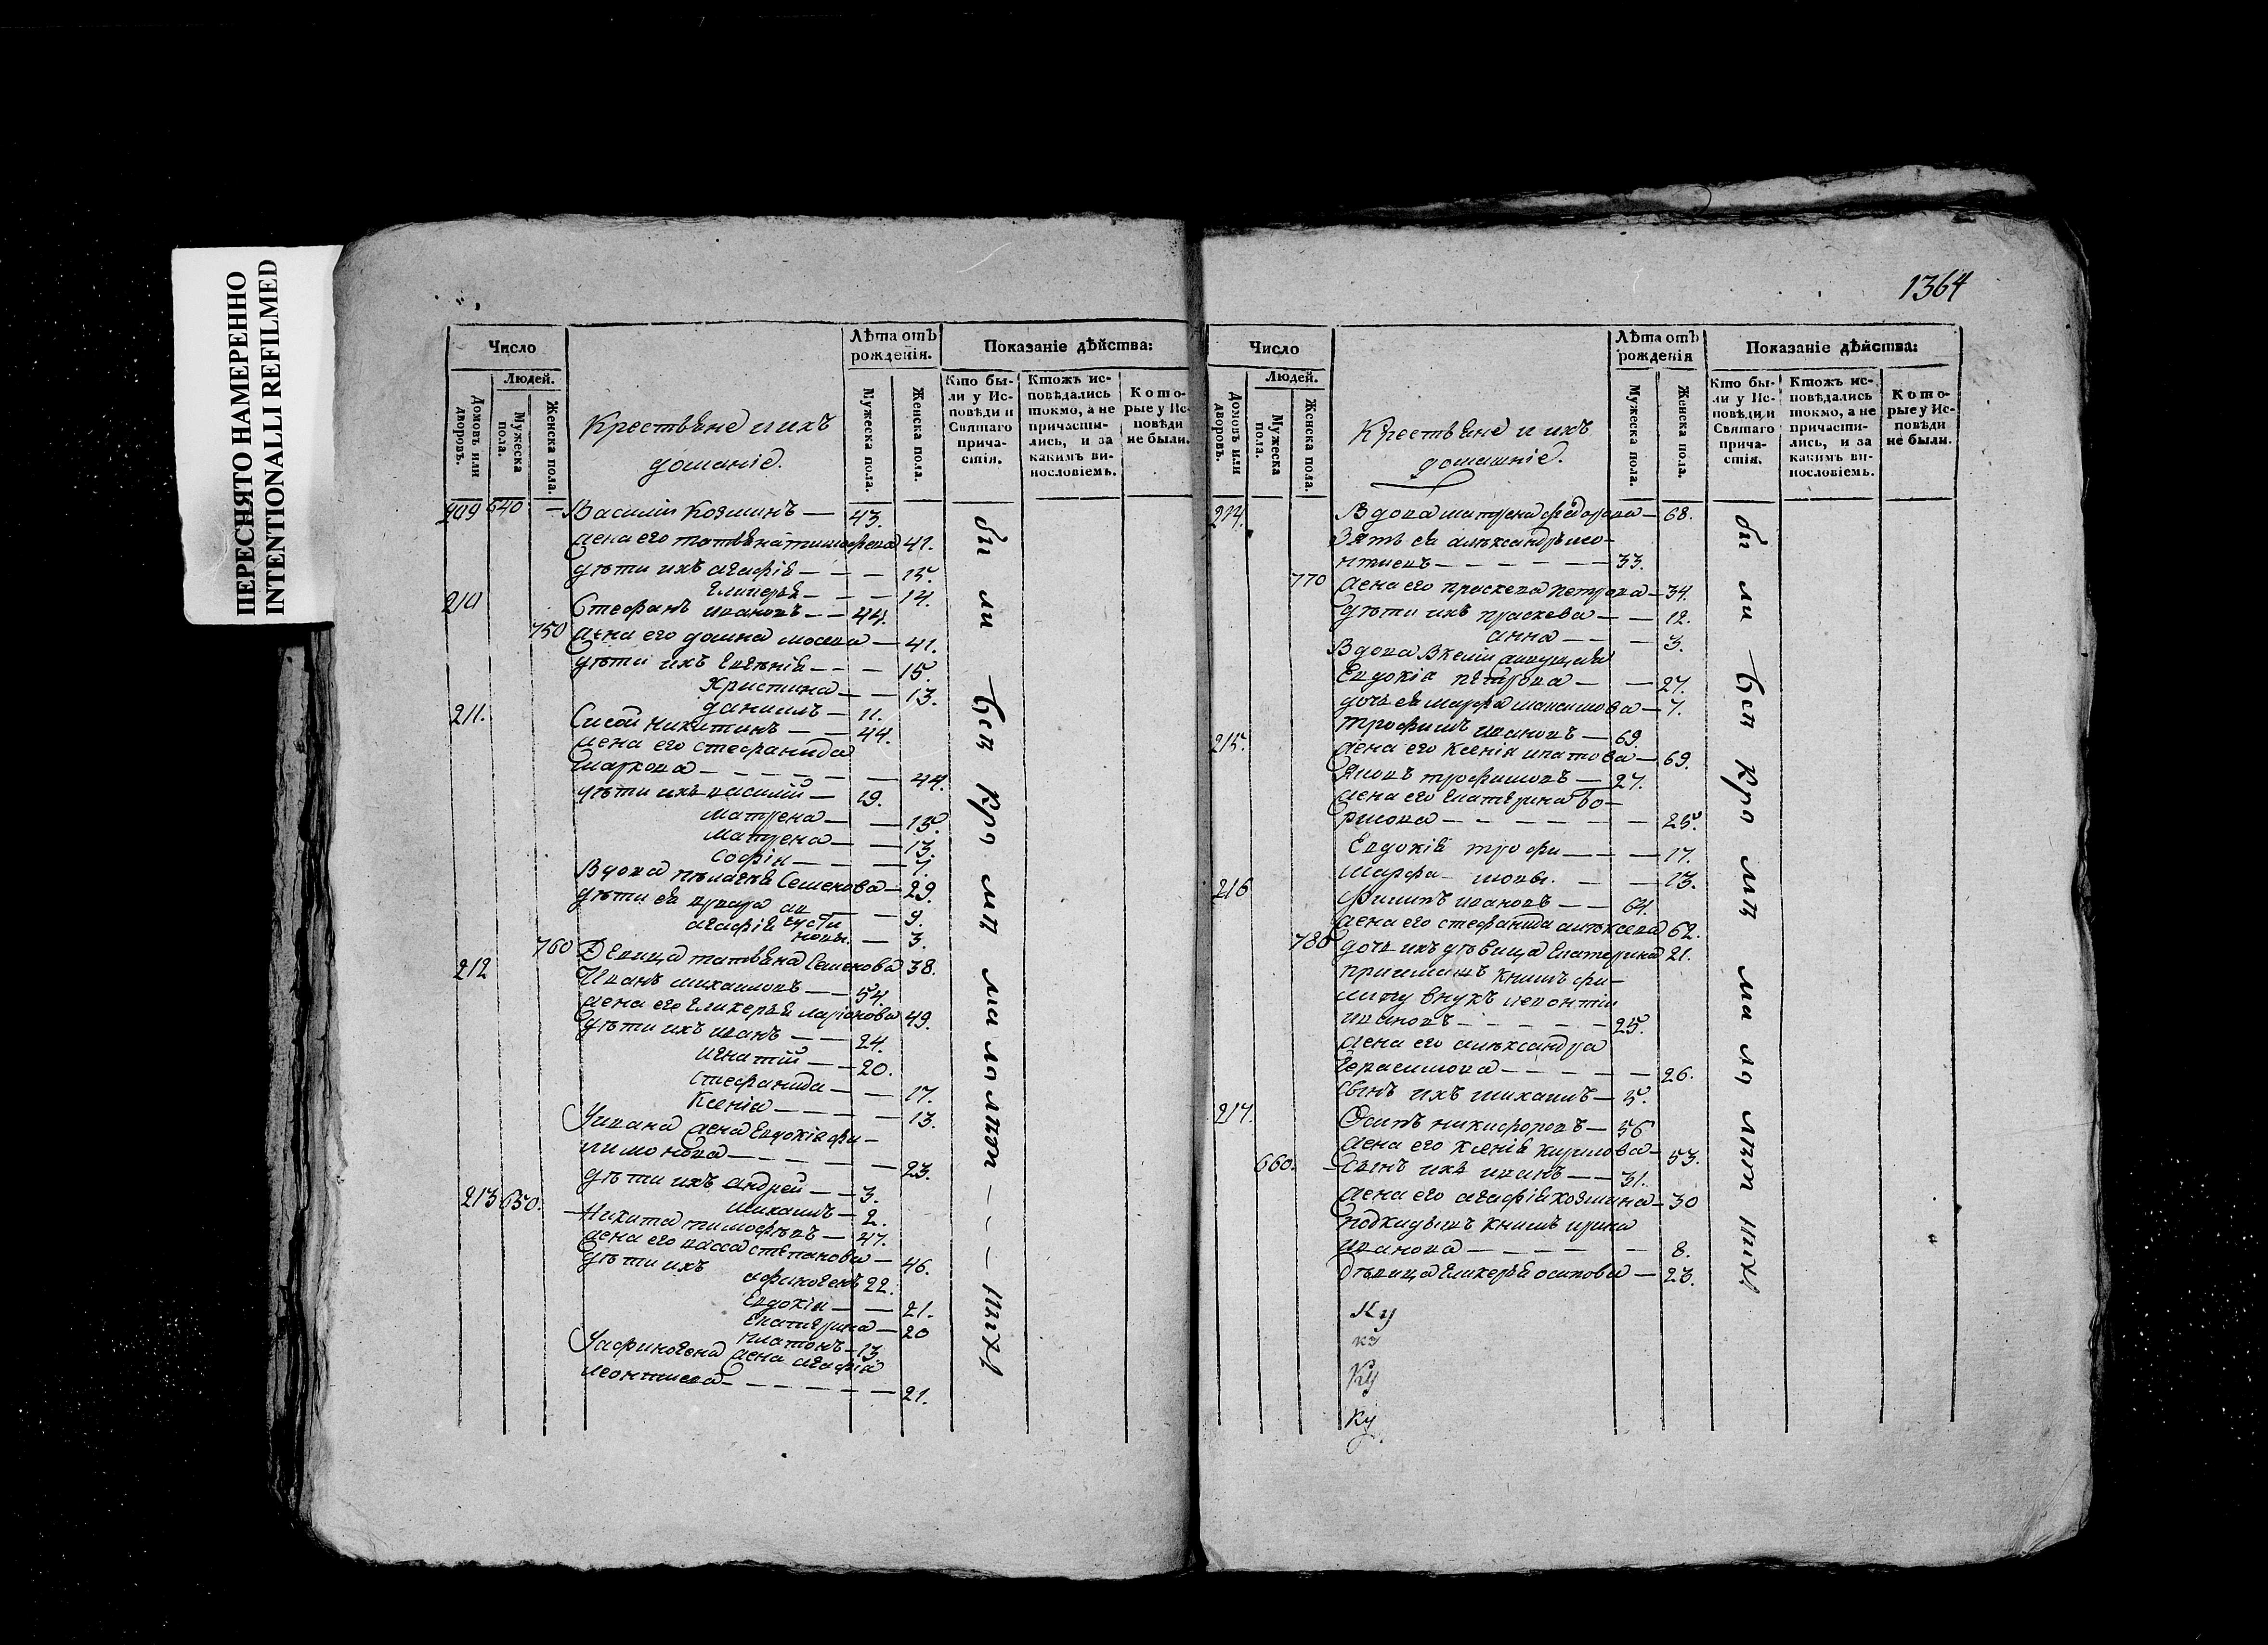 ПЕРЕСНЯТО НАМЕРЕННО
INTENTIONALLI REFILMED
Число
Людей.
Домовъ или дворовъ.
Мужеска пола.
Женска пола.
Крестьяне и ихъ
домашніе.
Лѣта отъ рожденія.
Мужеска пола.
Женска пола.
Показаніе дѣйства:
Кто бы-
ли у Ис-
повѣди и
Святаго
прича-
стія.
Ктожъ ис-
повѣдались
токмо, а не
причасти-
лись, и за
какимъ ви-
нословіемъ.
Кото-
рые у Ис-
повѣди
не были.
209 640 Василій Козминъ — 43.
жена его татьяна тимофеева 41.
дѣти ихъ агафія — 15.
Гликерія — 14.
210 Стефанъ ивановъ — 44.
750 жена его домна — 41.
дѣти ихъ Евгенія — 15.
Христина — 13.
даниилъ — 11.
211. Сисой никитинъ — 44.
жена его стефанида
маркова — 44.
дѣти ихъ василій — 19.
матрена — 15.
матрена — 13.
софія — 7.
Вдова пелагея Семенова — 29.
дѣти ея — 9.
агафія — 3.
760 Девица татьяна Семенова 38.
212 Иванъ михаиловъ — 54.
жена его гликерья ларіонова 49.
дѣти ихъ иванъ — 24.
игнатій — 20.
стефанида — 17.
Ксенія — 13.
Уивана жена Евдокія фи-
лимонова — 23.
дѣти ихъ андрей — 3.
михаилъ — 2.
213 650. Никита тимофѣевъ — 47.
жена его васса степанова — 46.
дѣти ихъ
афиногенъ 22.
Евдокія — 21.
Екатерина — 20
платонъ — 13
Уафиногена жена агафія
леонтиева — 21.
были всѣ
1364
Число
Людей.
Домовъ или дворовъ.
Мужеска пола.
Женска пола.
Крестьяне и ихъ
домашніе.
Лѣта отъ рожденія
Мужеска пола.
Женска пола.
Показаніе дѣйства:
Кто бы-
ли у Ис-
повѣди и
Святаго
прича-
стія.
Ктожъ ис-
повѣдались
токмо, а не
причасти-
лись, и за
какимъ ви-
нословіемъ.
Кото-
рые у Ис-
повѣди
не были.
214. Вдова матрена федорова — 68.
Зять ея александръ лео-
нтиевъ — 33.
770 жена его праскева петрова — 34.
дѣти ихъ праскева — 12.
анна — 3.
Вдова
Евдокія петрова — 27.
дочь ея марфа максимова — 7.
215. трофимъ ивановъ — 69.
жена его ксенія ипатова — 69.
Яковъ трофимовъ — 27.
жена его екатерина Бо-
рисова — 25.
Евдокія трофи — 17.
марфа мовы. — 13.
216 Филипъ ивановъ — 64.
жена его стефанида алексеева 62.
780 дочь ихъ дѣвица Екатерина 21.
пришлацъ книмъ фи-
липу внукъ леонтій
ивановъ — 25.
жена его александра
Герасимова — 26.
сынъ ихъ михаилъ — 5.
217. Осипъ никифоровъ — 56
жена его ксенія кирилова — 53.
660. Сынъ ихъ иванъ — 31.
жена его агафія козмина — 30
подкидышъ книмъ ирина
иванова — 8.
дѣвица гликерья осипова — 23.
Ку
кз
Ку
Ку
были всѣ